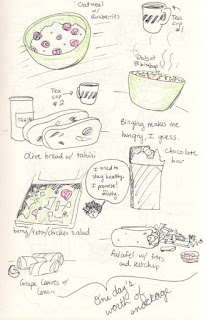 Oatmeal w/
Rasberries
Tea
cup
#1
Tea
cup
#2
Bowl of
Bibimbap
Binging makes me
hungry, I guess.
Olive bread w/ tahini
Chocolate
bar
I tried to
stay healthy,
I promise!
Mostly.
berry/feta/chicken salad
Falafel w/ fries
and ketchup
Grape leaves w/
lemon
One day's
worth of
snackage